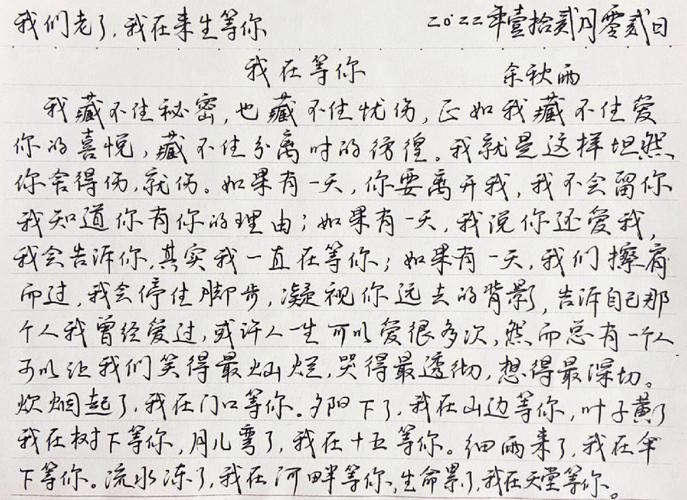 我们老了，我在来生等你
2022年壹拾贰月零贰日
我在等你
余秋雨
我藏不住秘密，也藏不住忧伤，正如我藏不住爱
你的喜悦，藏不住分离时的彷徨。我就是这样坦然
你舍得伤，就伤。如果有一天，你要离开我，我不会留你
我知道你有你的理由；如果有一天，我说你还爱我，
我会告诉你，其实我一直在等你；如果有一天，我们擦肩
而过，我会停住脚步，凝视你远去的背影，告诉自己那
个人我曾经爱过，或许人一生可以爱很多次，然而总有一个人
可以让我们笑得最灿烂，哭得最透彻，想得最深切。
炊烟起了，我在门口等你。夕阳下了，我在山边等你，叶子黄了
我在树下等你，月儿弯了，我在十五等你。细雨来了，我在伞
下等你。流水冻了，我在河畔等你，生命累了，我在天堂等你。